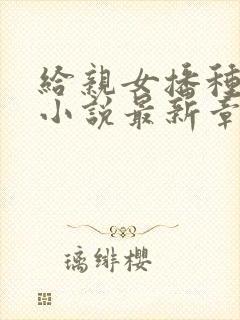 給親女播種
小說最新章
璃緋櫻